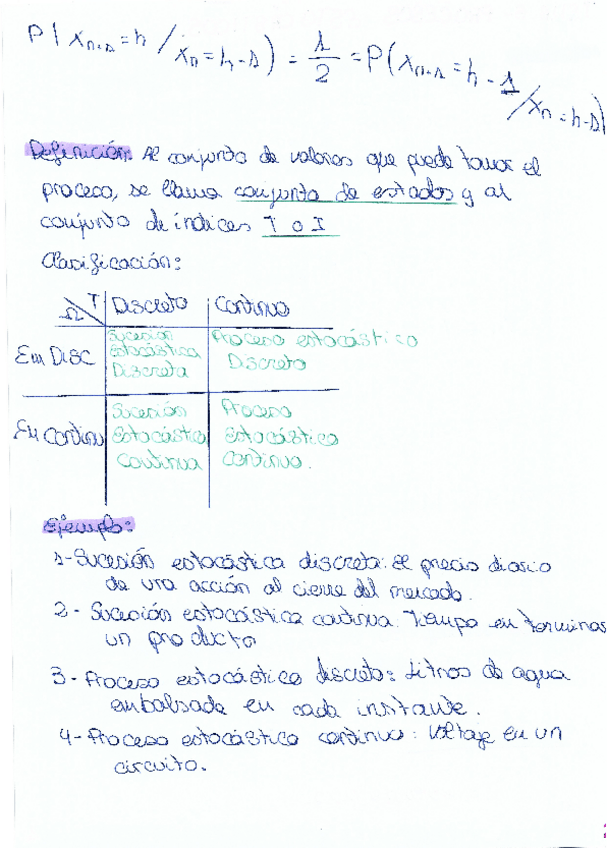 P( Xn+1 = h / Xn = h-1 ) = 1/2 = P( Xn+1 = h - 1 / Xn = h-1 )
Definición: Al conjunto de valores que puede tomar el
proceso, se llama conjunto de estados y al
conjunto de índices T o I
Clasificación:
T Discreto Continuo
Ω
Em Disc Sucesión Estocástica Discreta Proceso estocástico Discreto
Em Continu Sucesión Estocástica Continua Proceso Estocástico Continuo.
Ejemplo:
1-Sucesión estocástica discreta: El precio diario
de una acción al cierre del mercado.
2- Sucesión estocástica continua: Tiempo en terminar
un producto
3- Proceso estocástico discreto: Litros de agua
embalsada en cada instante.
4- Proceso estocástico continuo: Voltaje en un
circuito.